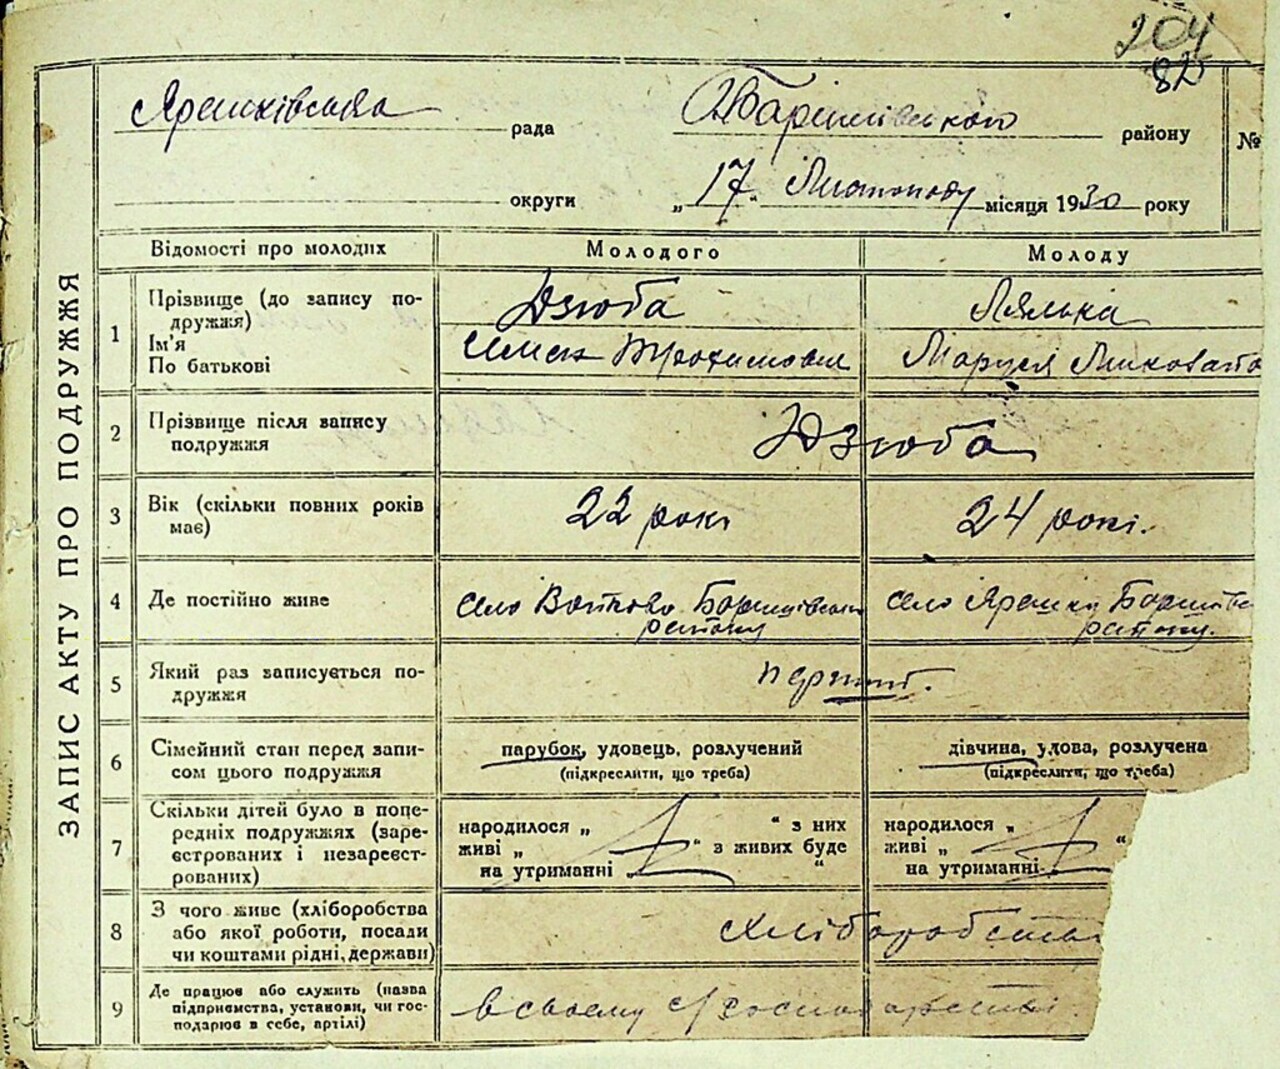 204
82
Ярешківська рада Баришівського району №
округи „17“ Листопаду місяця 1930 року
ЗАПИС АКТУ ПРО ПОДРУЖЖЯ
Відомості про молодих Молодого Молоду
1 Прізвище (до запису по-
дружжя)
Ім'я
По батькові
Дзюба Лялька
Трохимович Маруся
2 Прізвище після запису
подружжя
Дзюба
3 Вік (скільки повних років
має)
22 рокі 24 рокі.
4 Де постійно живе
село Войтково Боришівськ
району
село Ярешки Боришівс
району.
5 Який раз записується по-
дружжя
перший.
6 Сімейний стан перед запи-
сом цього подружжя
парубок, удовець, розлучений
(підкреслити, що треба)
дівчина, удова, розлучена
(підкреслити, що треба)
7 Скільки дітей було в попе-
редніх подружжях (заре-
єстрованих і незареєст-
рованих)
народилося „ “ з них
живі „ “ з живих буде
на утриманні “
народилося „
живі „ “
на утриманні
8 З чого живе (хліборобства
або якої роботи, посади
чи коштами рідні, держави)
Хліборобства
9 Де працює або служить (назва
підприємства, установи, чи гос-
подарює в себе, артілі)
в своему с/господарстві.